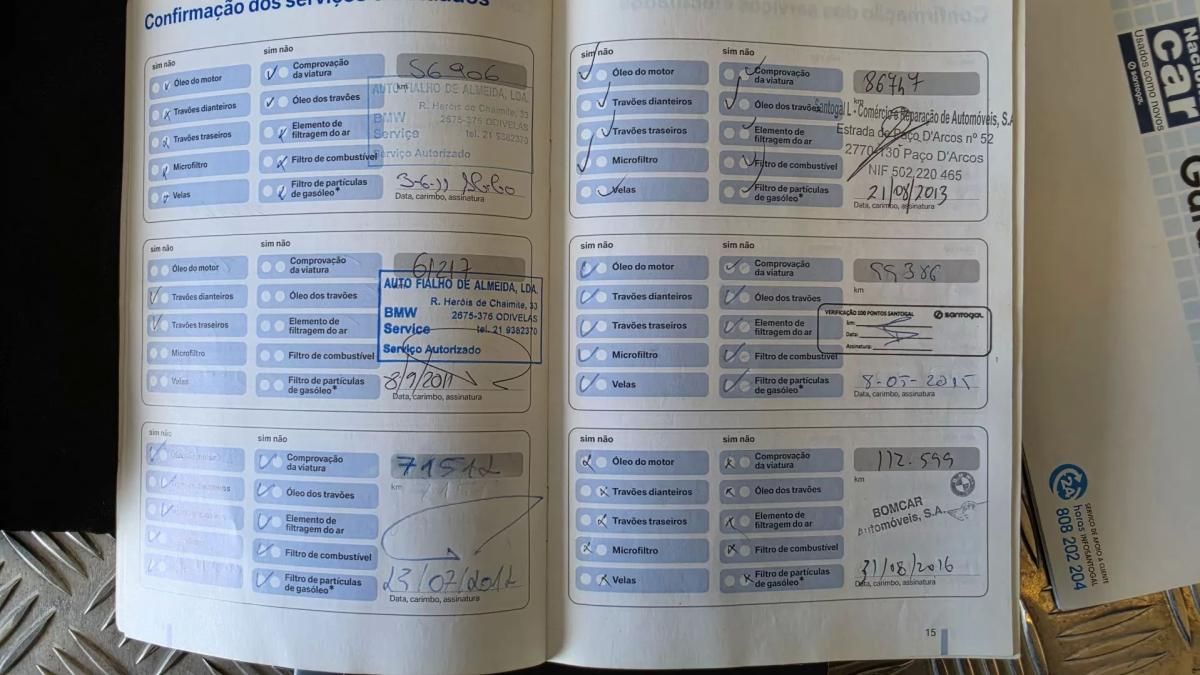 Confirmação dos serviços
sim não
sim não
Óleo do motor
Travões dianteiros
Travões traseiros
Microfiltro
Velas
Comprovação da viatura
Óleo dos travões
Elemento de filtragem do ar
Filtro de combustível
Filtro de partículas de gasóleo*
56906
km
AUTO FIALHO DE ALMEIDA, LDA.
R. Heróis de Chaimite, 33
BMW 2675-376 ODIVELAS
Service tel. 21 9382370
Serviço Autorizado
3-6-11
Data, carimbo, assinatura
sim não
sim não
Óleo do motor
Travões dianteiros
Travões traseiros
Microfiltro
Velas
Comprovação da viatura
Óleo dos travões
Elemento de filtragem do ar
Filtro de combustível
Filtro de partículas de gasóleo*
61217
AUTO FIALHO DE ALMEIDA, LDA.
R. Heróis de Chaimite, 33
BMW 2675-376 ODIVELAS
Service tel. 21 9382370
Serviço Autorizado
8/9/2011
Data, carimbo, assinatura
sim não
sim não
Comprovação da viatura
Óleo dos travões
Elemento de filtragem do ar
Filtro de combustível
Filtro de partículas de gasóleo*
71512
km
23/07/2012
Data, carimbo, assinatura
sim não
sim não
Óleo do motor
Travões dianteiros
Travões traseiros
Microfiltro
Velas
Comprovação da viatura
Óleo dos travões
Elemento de filtragem do ar
Filtro de combustível
Filtro de partículas de gasóleo*
86747
km
Santogal L - Comércio e Reparação de Automóveis, S.A.
Estrada de Paço D'Arcos nº 52
2770-130 Paço D'Arcos
NIF 502 220 465
21/08/2013
Data, carimbo, assinatura
sim não
sim não
Óleo do motor
Travões dianteiros
Travões traseiros
Microfiltro
Velas
Comprovação da viatura
Óleo dos travões
Elemento de filtragem do ar
Filtro de combustível
Filtro de partículas de gasóleo*
99386
km
VERIFICAÇÃO 100 PONTOS SANTOGAL
santogal
km:
Data:
Assinatura:
8-05-2015
Data, carimbo, assinatura
sim não
sim não
Óleo do motor
Travões dianteiros
Travões traseiros
Microfiltro
Velas
Comprovação da viatura
Óleo dos travões
Elemento de filtragem do ar
Filtro de combustível
Filtro de partículas de gasóleo*
112.599
km
BOMCAR
Automóveis, S.A.
31/08/2016
Data, carimbo, assinatura
15
Car
Usados como novos
santogal
24 horas
SERVIÇO DE APOIO A CLIENTE
INFOSANTOGAL
808 202 204